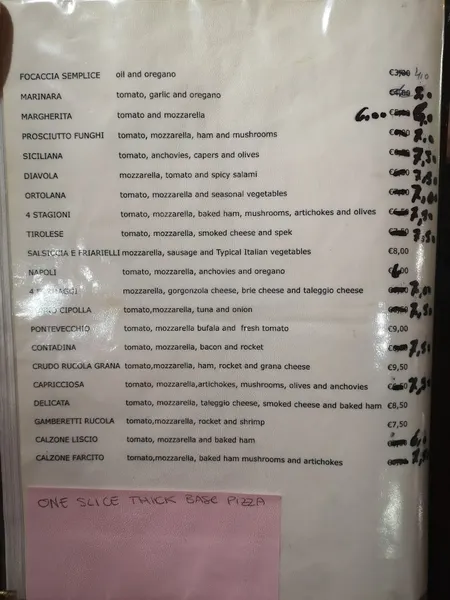 FOCACCIA SEMPLICE oil and oregano 4,0
MARINARA tomato, garlic and oregano
MARGHERITA tomato and mozzarella 6.00
PROSCIUTTO FUNGHI tomato, mozzarella, ham and mushrooms
SICILIANA tomato, anchovies, capers and olives 7,50
DIAVOLA mozzarella, tomato and spicy salami
ORTOLANA tomato, mozzarella and seasonal vegetables
4 STAGIONI tomato, mozzarella, baked ham, mushrooms, artichokes and olives 7,50
TIROLESE tomato, mozzarella, smoked cheese and spek 7,50
SALSICCIA E FRIARIELLI mozzarella, sausage and Typical Italian vegetables €8,00
NAPOLI tomato, mozzarella, anchovies and oregano
4 mozzarella, gorgonzola cheese, brie cheese and taleggio cheese
CIPOLLA tomato, mozzarella, tuna and onion 7,50
PONTEVECCHIO tomato, mozzarella bufala and fresh tomato €9,00
CONTADINA tomato, mozzarella, bacon and rocket 7,50
CRUDO RUCOLA GRANA tomato,mozzarella, ham, rocket and grana cheese €9,50
CAPRICCIOSA tomato,mozzarella,artichokes, mushrooms, olives and anchovies 7,50
DELICATA tomato, mozzarella, taleggio cheese, smoked cheese and baked ham €8,50
GAMBERETTI RUCOLA tomato,mozzarella, rocket and shrimp €7,50
CALZONE LISCIO tomato, mozzarella and baked ham
CALZONE FARCITO tomato,mozzarella, baked ham mushrooms and artichokes
ONE SLICE THICK BASE PIZZA